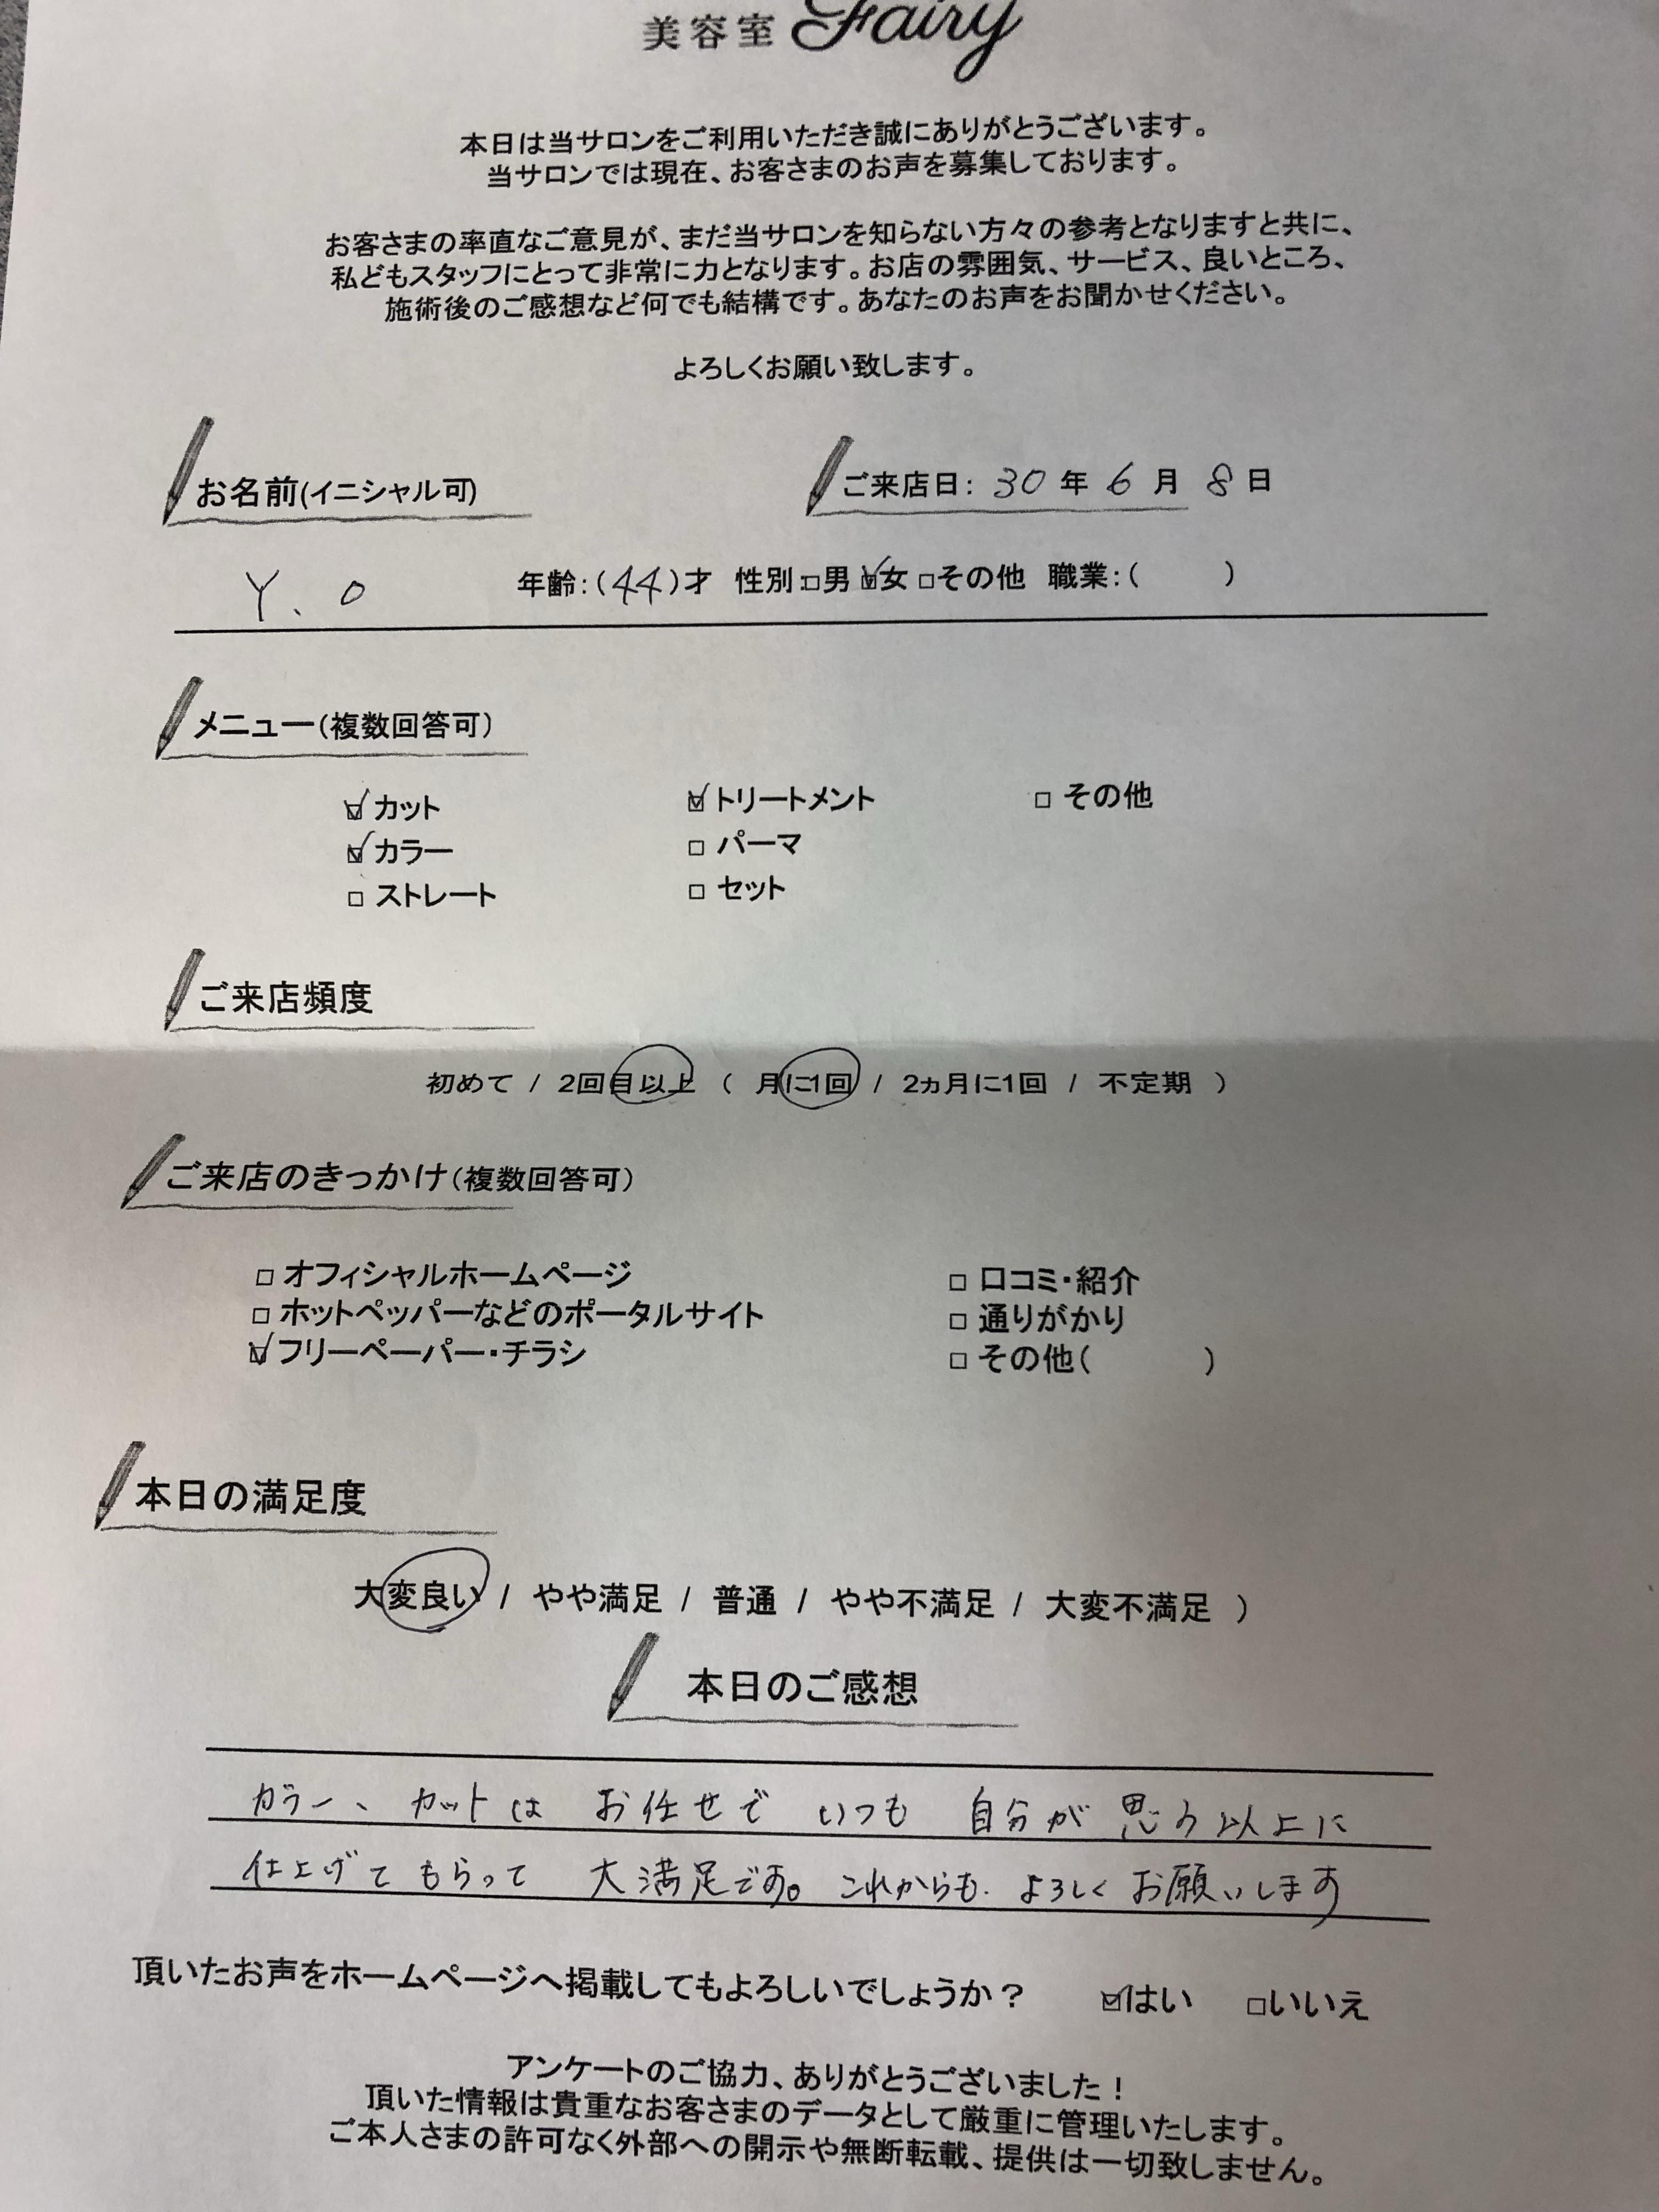 美容室 Fairy
本日は当サロンをご利用いただき誠にありがとうございます。
当サロンでは現在、お客さまのお声を募集しております。
お客さまの率直なご意見が、まだ当サロンを知らない方々の参考となりますと共に、
私どもスタッフにとって非常に力となります。お店の雰囲気、サービス、良いところ、
施術後のご感想など何でも結構です。あなたのお声をお聞かせください。
よろしくお願い致します。
お名前(イニシャル可) ご来店日: 30 年 6 月 8 日
Y.O 年齢:(44)才 性別:□男 ☑女 □その他 職業:( )
メニュー(複数回答可)
☑カット ☑トリートメント □その他
☑カラー □パーマ
□ストレート □セット
ご来店頻度
初めて / 2回目以上 ( 月に1回 / 2ヵ月に1回 / 不定期 )
ご来店のきっかけ(複数回答可)
□オフィシャルホームページ □口コミ・紹介
□ホットペッパーなどのポータルサイト □通りがかり
☑フリーペーパー・チラシ □その他( )
本日の満足度
大変良い / やや満足 / 普通 / やや不満足 / 大変不満足 )
本日のご感想
カラー、カットは お任せで いつも 自分が 思う以上に
仕上げて もらって 大満足です。これからも よろしく お願いします
頂いたお声をホームページへ掲載してもよろしいでしょうか? ☑はい □いいえ
アンケートのご協力、ありがとうございました!
頂いた情報は貴重なお客さまのデータとして厳重に管理いたします。
ご本人さまの許可なく外部への開示や無断転載、提供は一切致しません。